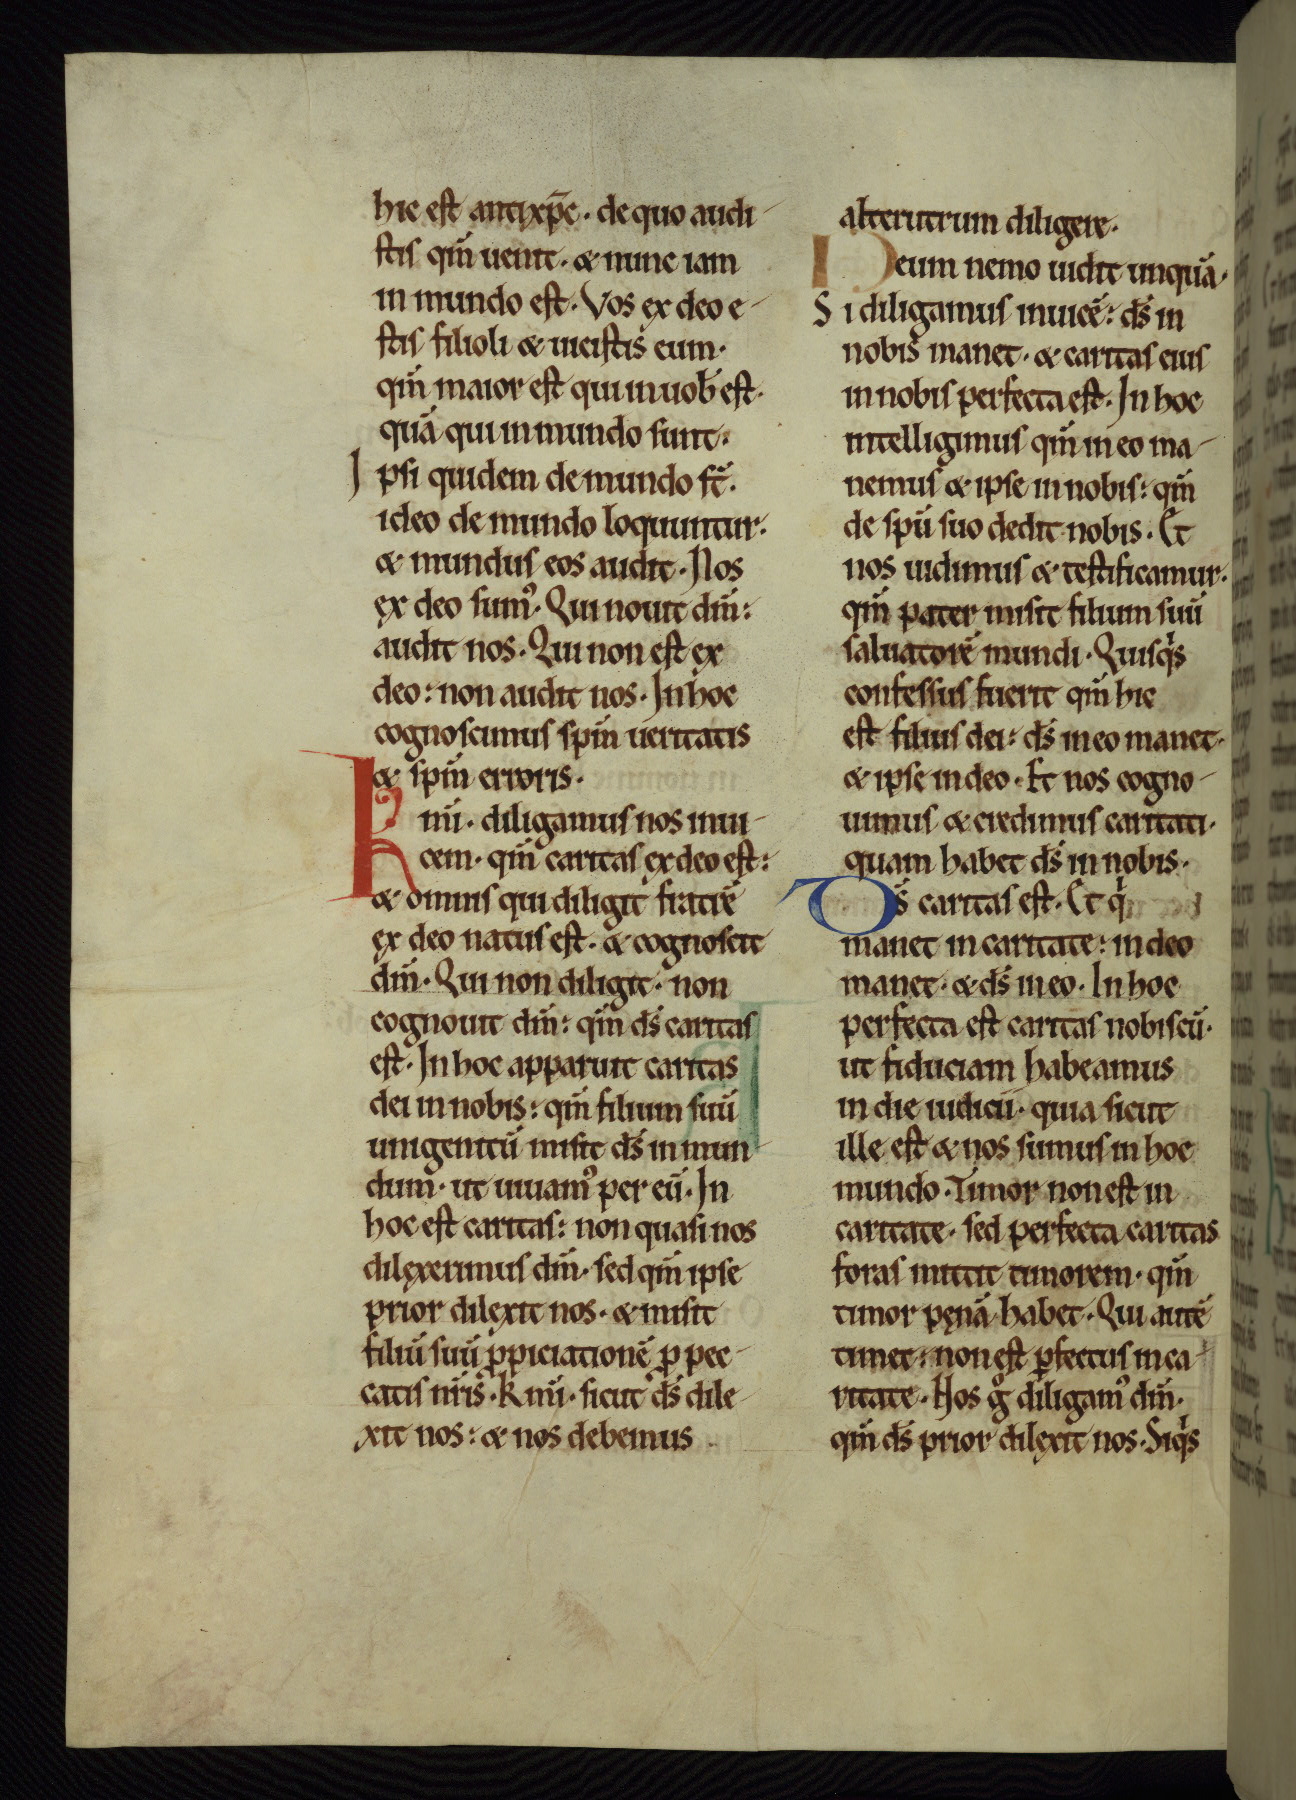 hic est antixp̄c · de quo audi-
stis qm̄ uenit · & nunc iam
in mundo est · Vos ex deo e-
stis filioli & uicistis eum ·
qm̄ maior est qui in uob̄ est ·
quā qui in mundo sunt ·
Ipsi quidem de mundo st̄ ·
ideo de mundo loquuntur ·
& mundus eos audit · Nos
ex deo sumꝰ · Qui nouit dm̄ :
audit nos · Qui non est ex
deo : non audit nos · In hoc
cognoscimus spm̄ ueritatis
& spm̄ erroris ·
Kmi̅ · diligamus nos inui-
cem · qm̄ caritas ex deo est :
& omnis qui diligit fratrē
ex deo natus est · & cognoscit
dm̄ · Qui non diligit · non
cognouit dm̄ : qm̄ ds̄ caritas
est · In hoc apparuit caritas
dei in nobis : qm̄ filium suū
unigenitū misit ds̄ in mun-
dum · ut uiuamꝰ per eū · In
hoc est caritas : non quasi nos
dilexerimus dm̄ · sed qm̄ ipse
prior dilexit nos · & misit
filiū suū ꝓpiciationē ꝓ pec-
catis nr̄is · Kmi̅ · sicut ds̄ dile-
xit nos : & nos debemus
alterutrum diligere ·
Deum nemo uidit unquā ·
Si diligamus inuicē : ds̄ in
nobis manet · & caritas eius
in nobis perfecta est · In hoc
intelligimus qm̄ in eo ma-
nemus & ipse in nobis : qm̄
de spū suo dedit nobis · Et
nos uidimus & testificamur ·
qm̄ pater misit filium suū
saluatorē mundi · Quisqͥs
confessus fuerit qm̄ hic
est filius dei : ds̄ in eo manet ·
& ipse in deo · Et nos cogno-
uimus & credimus caritati ·
quam habet ds̄ in nobis ·
Ds̄ caritas est · Et qͥ
manet in caritate : in deo
manet · & ds̄ in eo · In hoc
perfecta est caritas nobiscū ·
ut fiduciam habeamus
in die iudicii · quia sicut
ille est & nos sumus in hoc
mundo · Timor non est in
caritate · sed perfecta caritas
foras mittit timorem · qm̄
timor pęnā habet · Qui autē
timet : non est ꝑfectus in ca-
ritate · Nos gͦ diligamꝰ dm̄ ·
qm̄ ds̄ prior dilexit nos · Siqͥs